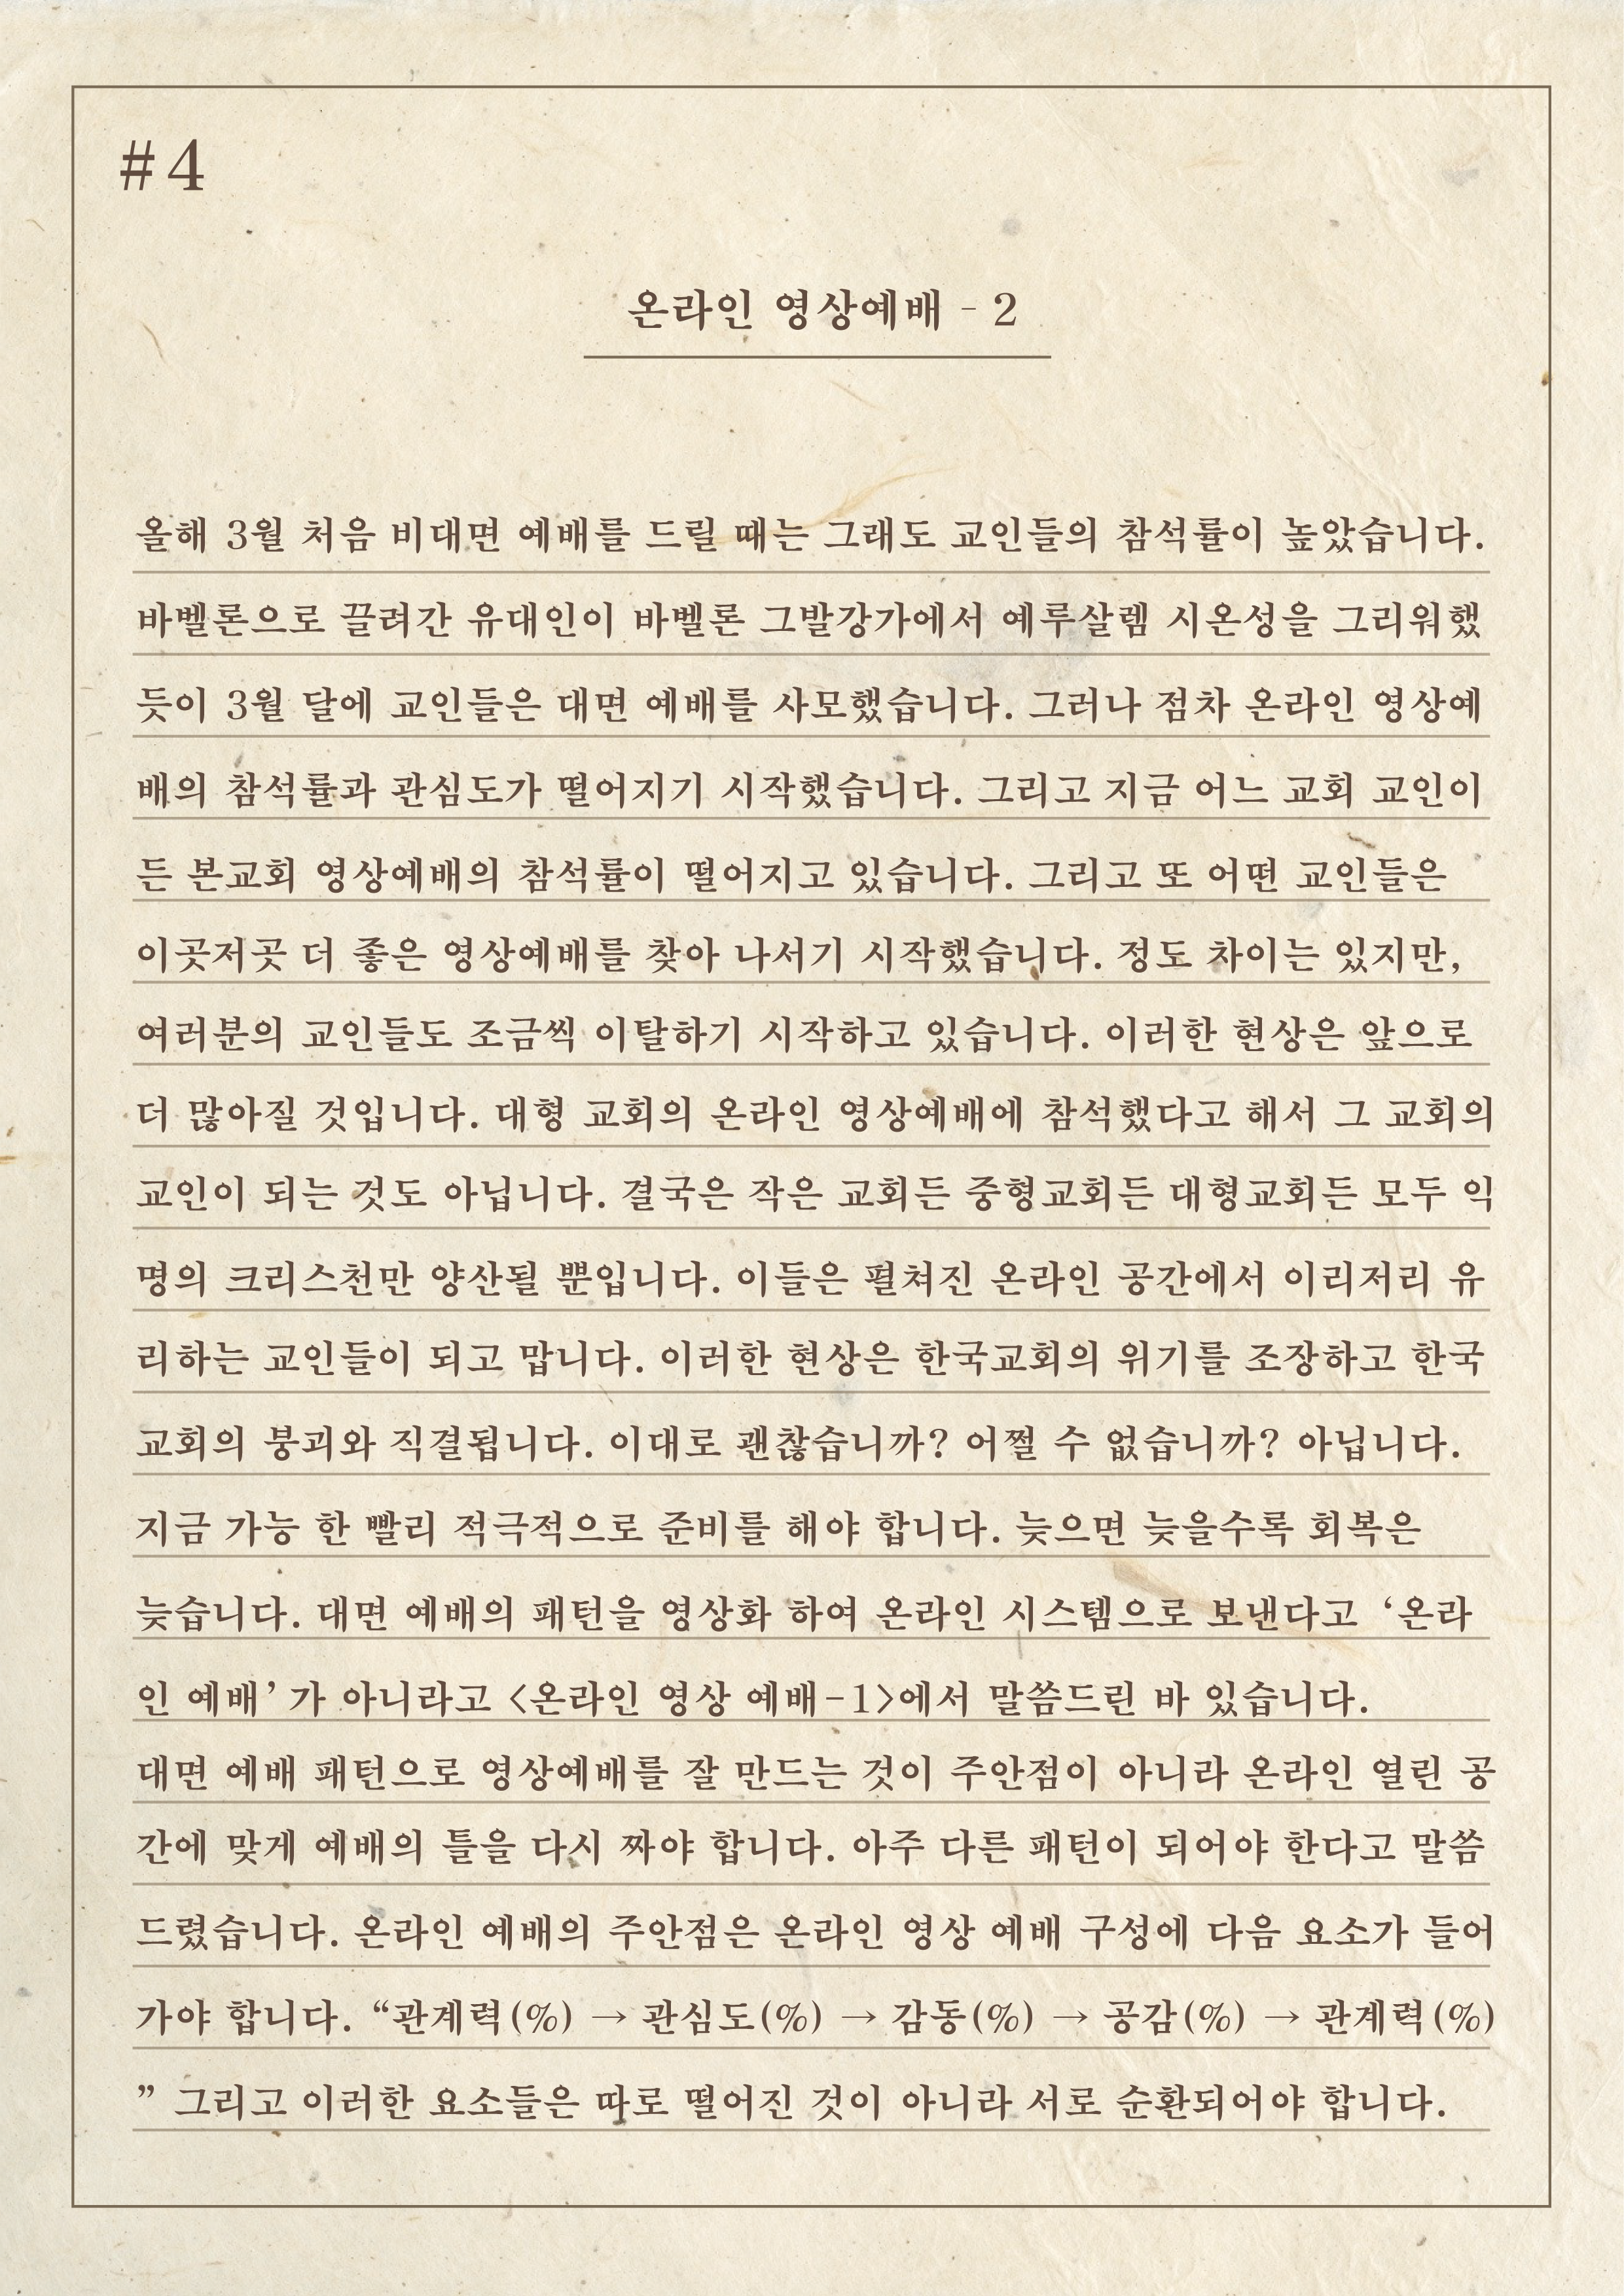 #4
온라인 영상예배 - 2
올해 3월 처음 비대면 예배를 드릴 때는 그래도 교인들의 참석률이 높았습니다.
바벨론으로 끌려간 유대인이 바벨론 그발강가에서 예루살렘 시온성을 그리워했
듯이 3월 달에 교인들은 대면 예배를 사모했습니다. 그러나 점차 온라인 영상예
배의 참석률과 관심도가 떨어지기 시작했습니다. 그리고 지금 어느 교회 교인이
든 본교회 영상예배의 참석률이 떨어지고 있습니다. 그리고 또 어떤 교인들은
이곳저곳 더 좋은 영상예배를 찾아 나서기 시작했습니다. 정도 차이는 있지만,
여러분의 교인들도 조금씩 이탈하기 시작하고 있습니다. 이러한 현상은 앞으로
더 많아질 것입니다. 대형 교회의 온라인 영상예배에 참석했다고 해서 그 교회의
교인이 되는 것도 아닙니다. 결국은 작은 교회든 중형교회든 대형교회든 모두 익
명의 크리스천만 양산될 뿐입니다. 이들은 펼쳐진 온라인 공간에서 이리저리 유
리하는 교인들이 되고 맙니다. 이러한 현상은 한국교회의 위기를 조장하고 한국
교회의 붕괴와 직결됩니다. 이대로 괜찮습니까? 어쩔 수 없습니까? 아닙니다.
지금 가능 한 빨리 적극적으로 준비를 해야 합니다. 늦으면 늦을수록 회복은
늦습니다. 대면 예배의 패턴을 영상화 하여 온라인 시스템으로 보낸다고 ‘온라
인 예배’가 아니라고 <온라인 영상 예배-1>에서 말씀드린 바 있습니다.
대면 예배 패턴으로 영상예배를 잘 만드는 것이 주안점이 아니라 온라인 열린 공
간에 맞게 예배의 틀을 다시 짜야 합니다. 아주 다른 패턴이 되어야 한다고 말씀
드렸습니다. 온라인 예배의 주안점은 온라인 영상 예배 구성에 다음 요소가 들어
가야 합니다. “관계력(%) → 관심도(%) → 감동(%) → 공감(%) → 관계력(%)
” 그리고 이러한 요소들은 따로 떨어진 것이 아니라 서로 순환되어야 합니다.